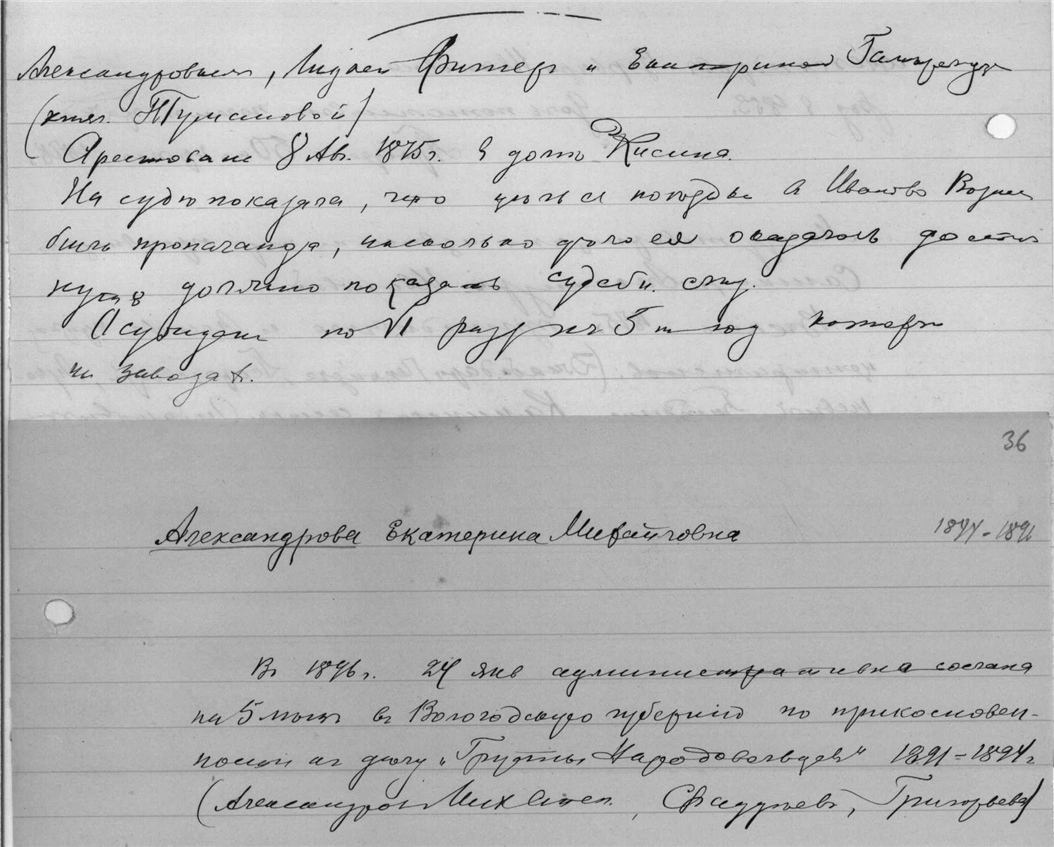 Александровым, Лидией Фигнер и Екатериной Гамкрелидзе
(княг. Тумановой)
Арестована 8 Ав. 1875 г. в доме Кисина.
На суде показала, что целью поездки в Иваново Возн
была пропаганда, насколько оказалось
должно показать судебн. след.
Осуждена по VI разр на 5 л
на заводах.
36
Александрова Екатерина Михайловна
В 1896 г. 24 янв административна сослана
на 5 лет в Вологодскую губернию по прикосновен-
ности к делу "Группы Народовольцев" 1891-1894 г
(Александров Мих Степ, Фаддеев, Григорьева)